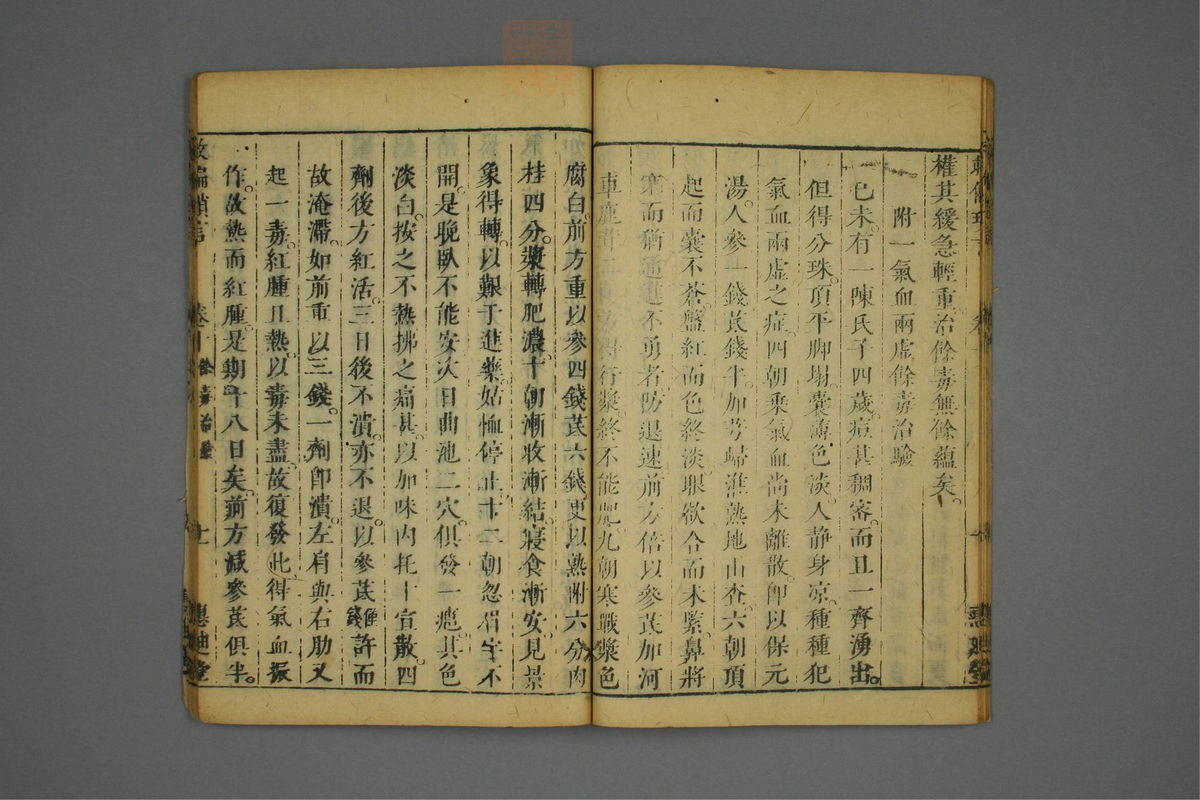 權其緩急輕重治餘毒無餘蘊矣
附一氣血兩虛餘毒治驗
己未有一陳氏子四歲痘甚稠密而且一齊湧出
但得分珠頂平脚塌囊薄色淡人静身凉種種犯
氣血兩虛之症四朝乘氣血尚未離散即以保元
湯人參一錢芪錢半加芎歸漼熟地山查六朝頂
起而囊不蒼盤紅而色終淡眼欲合而未緊鼻將
塞而猶通進不勇者防退速前方倍以參芪加河
車鹿茸而得行漿終不能肥九朝寒戰漿色
腐白前方重以參四錢芪六錢更以熟附六分肉
桂四分漿轉肥濃十朝漸收漸結寢食漸安見景
象得轉以艱于進藥姑恤停止十二朝忽眉宇不
開是晚臥不能安次日曲池二穴俱發一癰其色
淡白按之不熱拂之痛甚以加味内托十宣散四
劑後方紅活三日後不潰亦不退以參芪錢許而
故淹滯如前重以三錢一劑即潰左肩與右肋又
起一毒紅腫且熱以毒未盡故復發此得氣血振
作故熱而紅腫是期十八日矣前方減參芪俱半
卷十 餘毒治驗
十
惠迪堂